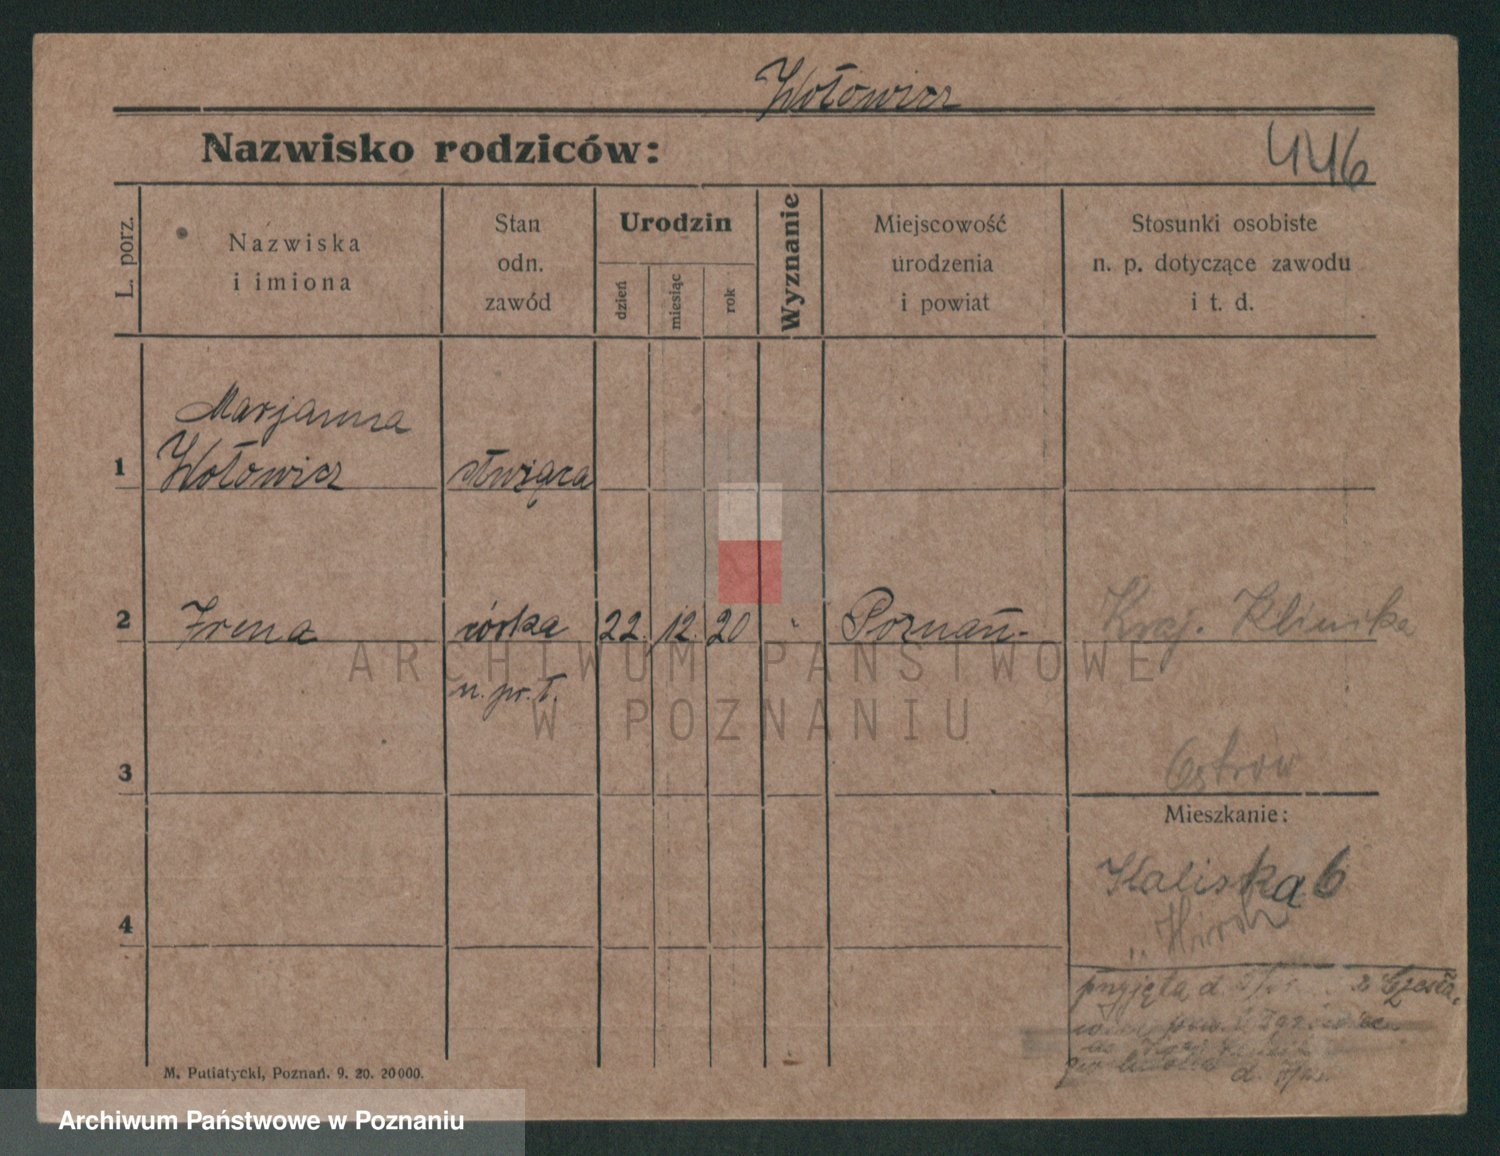 Wołowicz
Nazwisko rodziców:
446
L. porz.
Nazwiska
i imiona
Stan
odn.
zawód
Urodzin
dzień
miesiąc
rok
Wyznanie
Miejscowość
urodzenia
i powiat
Stosunki osobiste
n. p. dotyczące zawodu
i t. d.
1
Marjanna
Wołowicz
służąca
2
Irena
córka
22. 12. 20
Poznań.
Kraj. Klinika
n. pr. ł.
ARCHIWUM PAŃSTWOWE
W POZNANIU
3
Ostrów
Mieszkanie:
Kaliska 6
4
przyjęta d.
M. Putiatycki, Poznań. 9. 20. 20000.
Archiwum Państwowe w Poznaniu